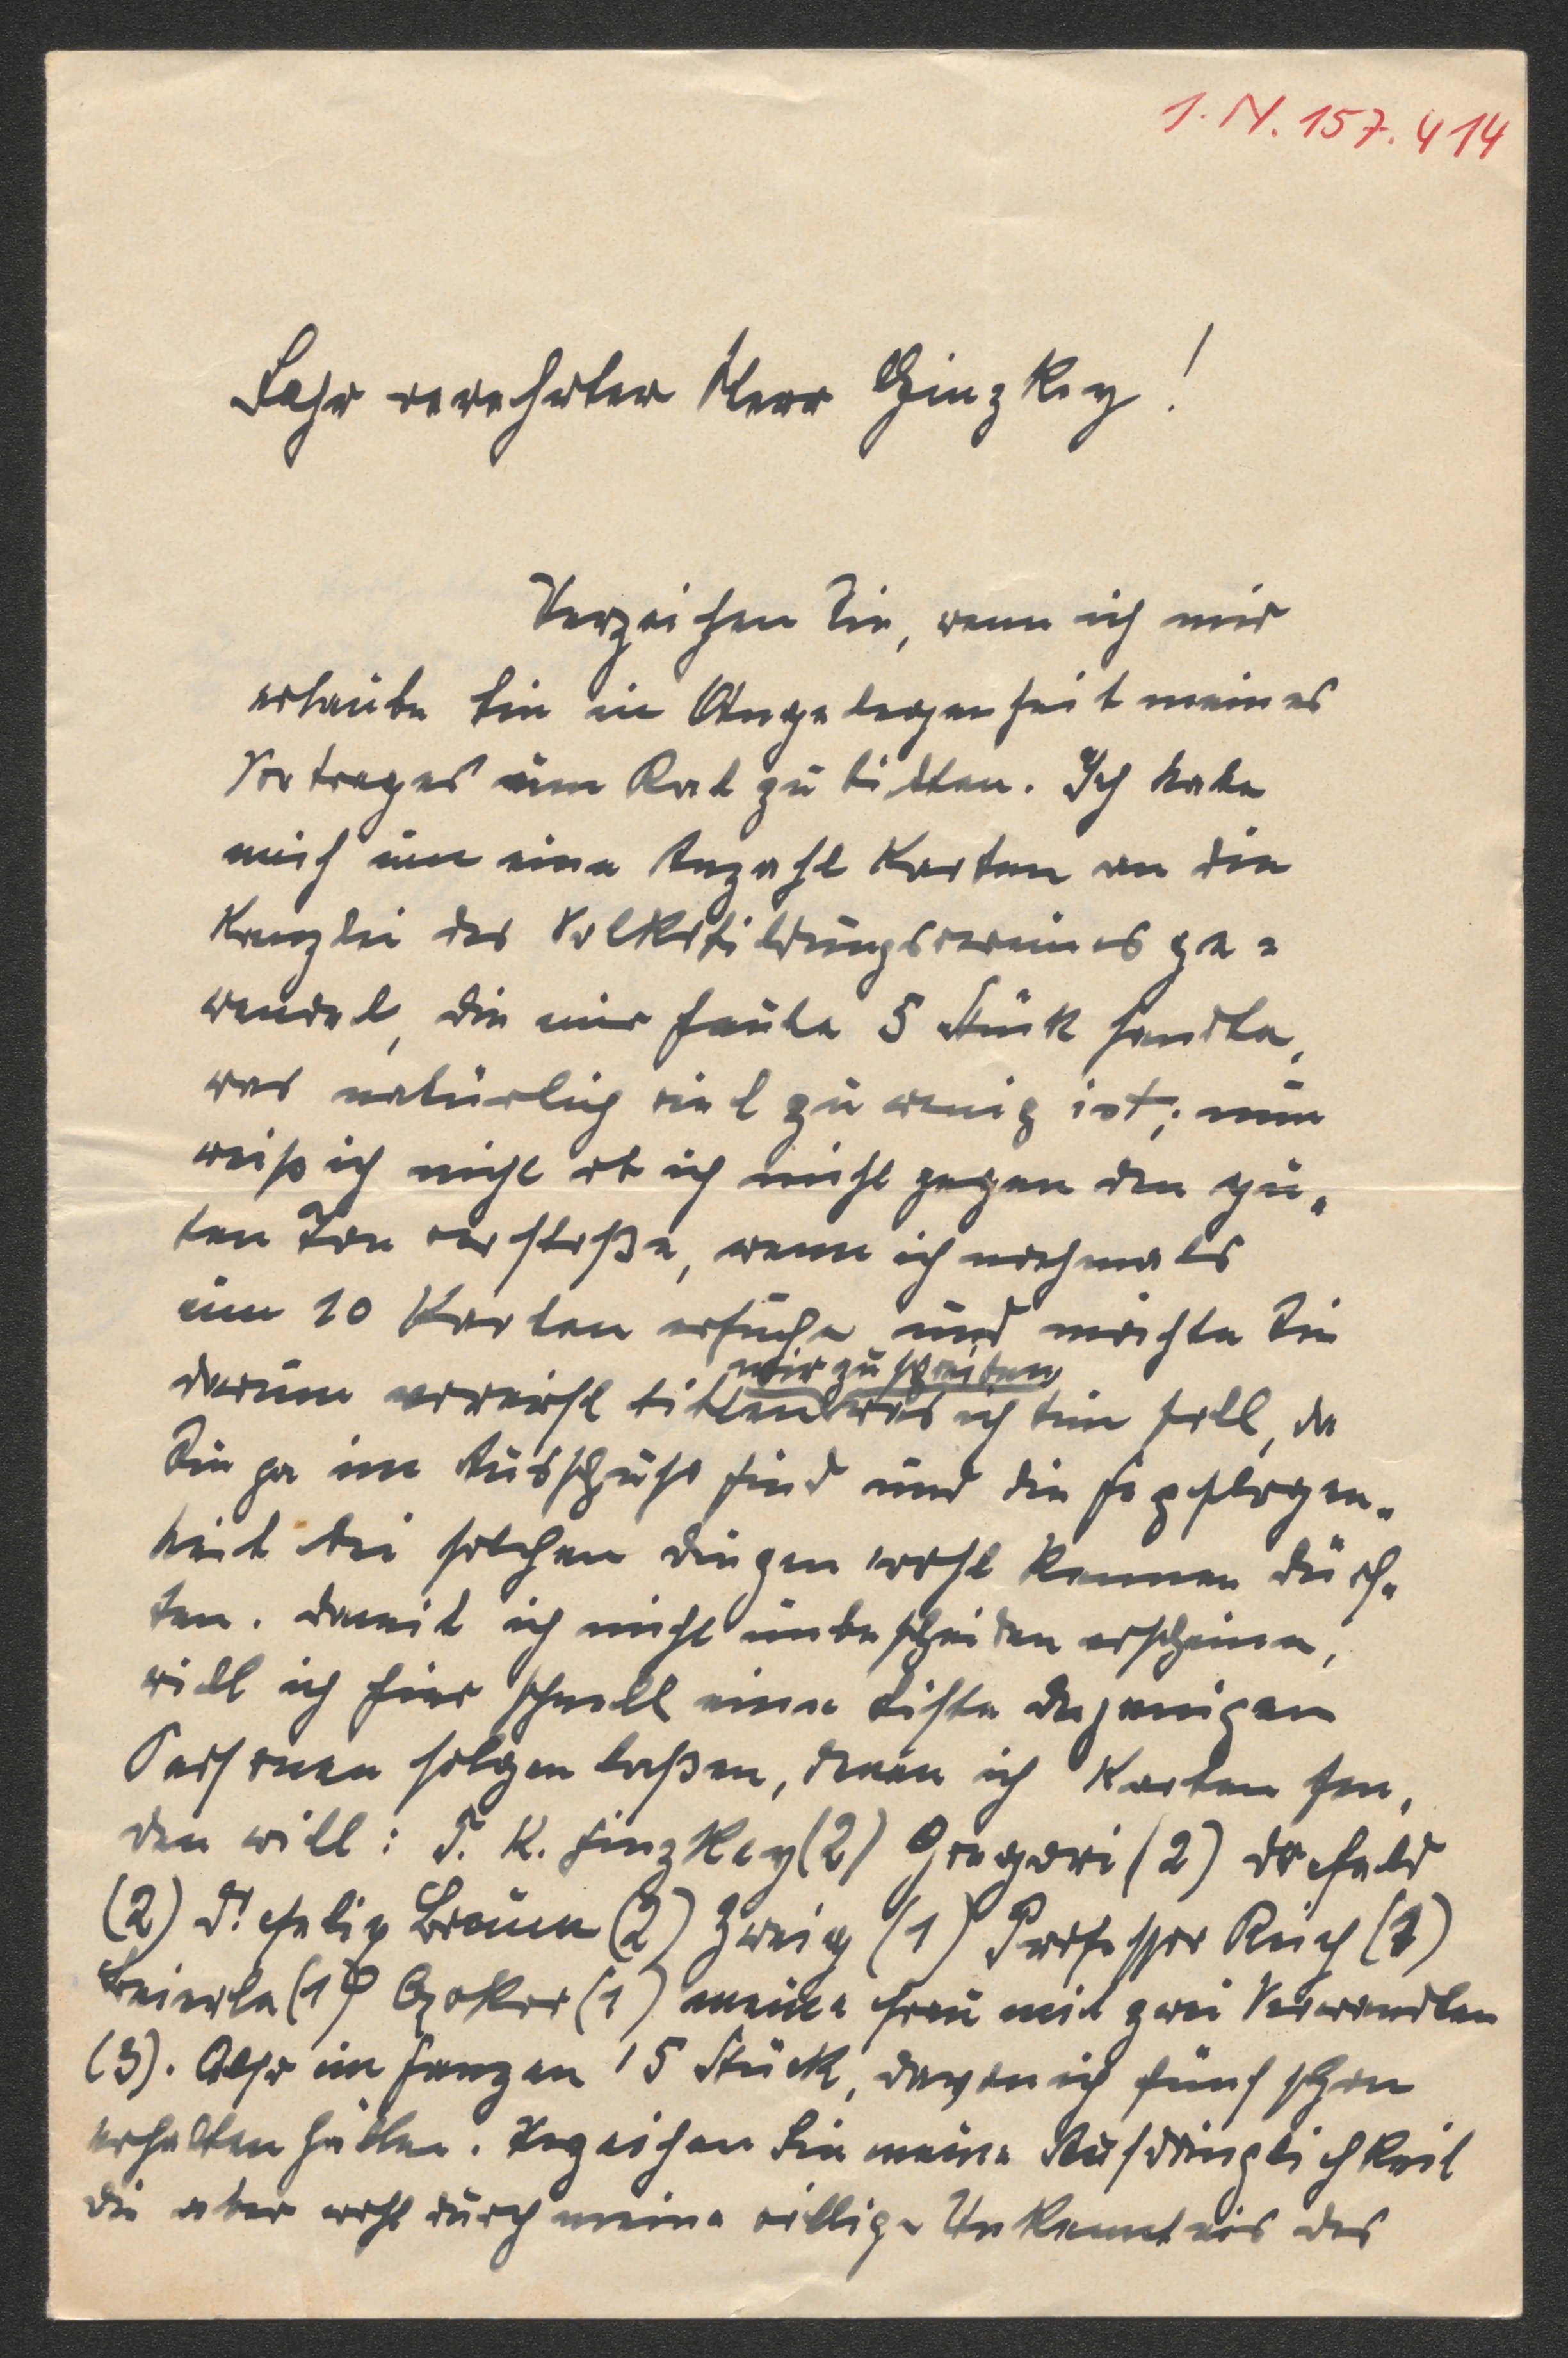 I. N. 157.414
Sehr verehrter Herr Ginzkey!
Verzeihen Sie, wenn ich mir
erlaube Sie in Angelegenheit meines
Vortrages um Rat zu bitten. Ich habe
mich um eine Anzahl Karten an die
Kanzlei des Volksbildungsvereines ge-
wendet, die mir heute 5 Stück sandte,
was natürlich viel zu wenig ist; nun
weiß ich nicht ob ich nicht gegen den gu-
ten Ton verstoße, wenn ich nochmals
um 10 Karten ersuche und möchte Sie
mir zu schreiben
darum vorerst bitten was ich tun soll, da
Sie ja im Ausschuß sind und die Gepflogen-
heit bei solchen Dingen wohl kennen dürf-
ten. Damit ich nicht unbescheiden erscheine,
will ich hier schnell eine Liste derjenigen
Personen folgen laßen, denen ich Karten sen-
den will: F. K. Ginzkey (2) Gregori (2)
(2) Dr Felix Braun (2) Zweig (1) Professor Reich (1)
(1) (1) meine Frau mit zwei Verwandten
(3). Also im Ganzen 15 Stück, davon ich fünf schon
erhalten hätte. Verzeihen Sie meine Aufdringlichkeit
die aber wohl durch meine völlige Unkenntnis des